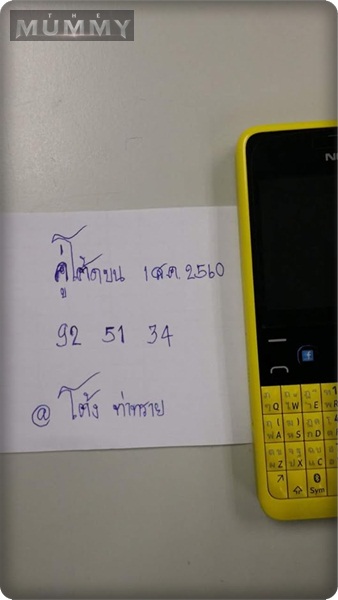 THE
MUMMY
คู่โต๊ดบน 1 ส.ค. 2560
92 51 34
@ โต้ง ท่าทราย
Q W E
A S D
Z X C
Sym